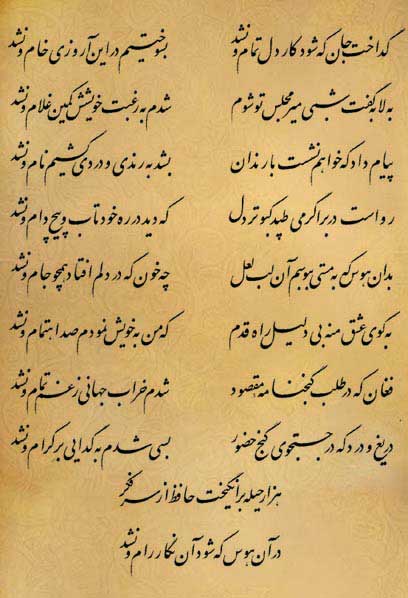 گداخت جان که شود کار دل تمام و نشد بسوختیم در این آرزوی خام و نشد
به لابه گفت شبی میر مجلس تو شوم شدم به رغبت خویشش کمین غلام و نشد
پیام داد که خواهم نشست با رندان بشد به رندی و دردی کشیم نام و نشد
رواست در بر اگر می طپد کبوتر دل که دید در ره خود تاب و پیچ دام و نشد
بدان هوس که به مستی ببوسم آن لب لعل چه خون که در دلم افتاد همچو جام و نشد
به کوی عشق منه بی دلیل راه قدم که من به خویش نمودم صد اهتمام و نشد
فغان که در طلب گنجنامه مقصود شدم خراب جهانی ز غم تمام و نشد
دریغ و درد که در جستجوی گنج حضور بسی شدم به گدایی بر کرام و نشد
هزار حیله برانگیخت حافظ از سر فکر
در آن هوس که شود آن نگار رام و نشد